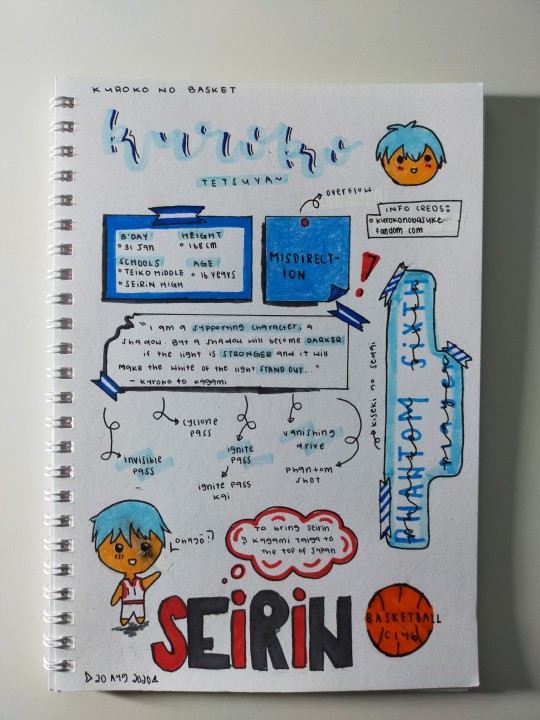 KUROKO NO BASKET
kuroko
TETSUYA~
overflow
INFO CREDS:
kurokonobasuke.
fandom.com
B'DAY
31 Jan
HEIGHT
168 cm
SCHOOLS
TEIKO MIDDLE
SEIRIN HIGH
AGE
16 years
MISDIRECT-
ION
!
"I am a supporting character, a
shadow. But a shadow will become DARKER
if the light is STRONGER and it will
make the white of the light STAND OUT..."
- Kuroko to Kagami
Kiseki no sedai
PHANTOM SIXTH
player
invisible
pass
cyclone
pass
ignite
pass
ignite pass
kai
vanishing
drive
phantom
shot
ohayo :)
To bring Seirin
& Kagami Taiga to
the top of Japan
SEIRIN
BASKETBALL
CLUB
20 Aug 2020